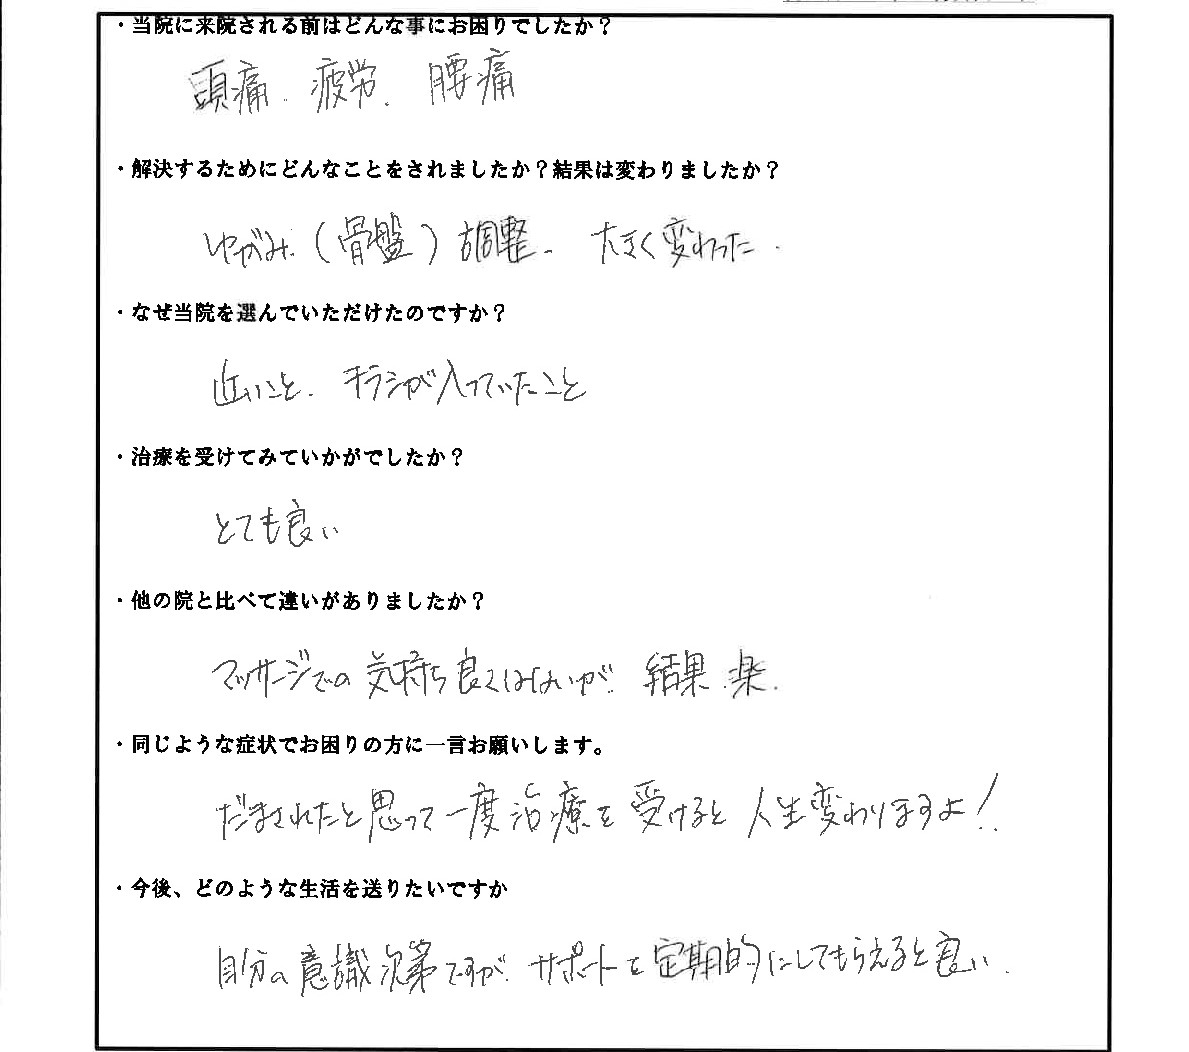 ・当院に来院される前はどんな事にお困りでしたか？
頭痛．疲労．腰痛
・解決するためにどんなことをされましたか？結果は変わりましたか？
ゆがみ（骨盤）調整．大きく変わった．
・なぜ当院を選んでいただけたのですか？
近いこと．チラシが入っていたこと
・治療を受けてみていかがでしたか？
とても良い
・他の院と比べて違いがありましたか？
マッサージでの気持ち良くはないが．結果．楽．
・同じような症状でお困りの方に一言お願いします。
だまされたと思って一度治療を受けると人生変わりますよ！！
・今後、どのような生活を送りたいですか
自分の意識次第ですが．サポートを定期的にしてもらえると良い．